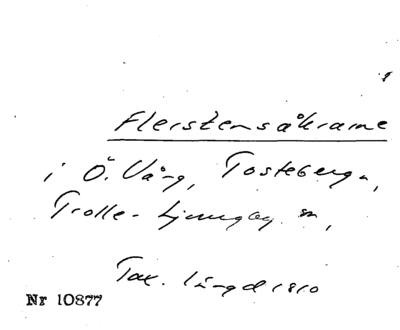 Flerstensåkrarne
i Ö. Vång, Tosteberga,
Trolle-Ljungby sn,
Tax. längd 1810
Nr 10877